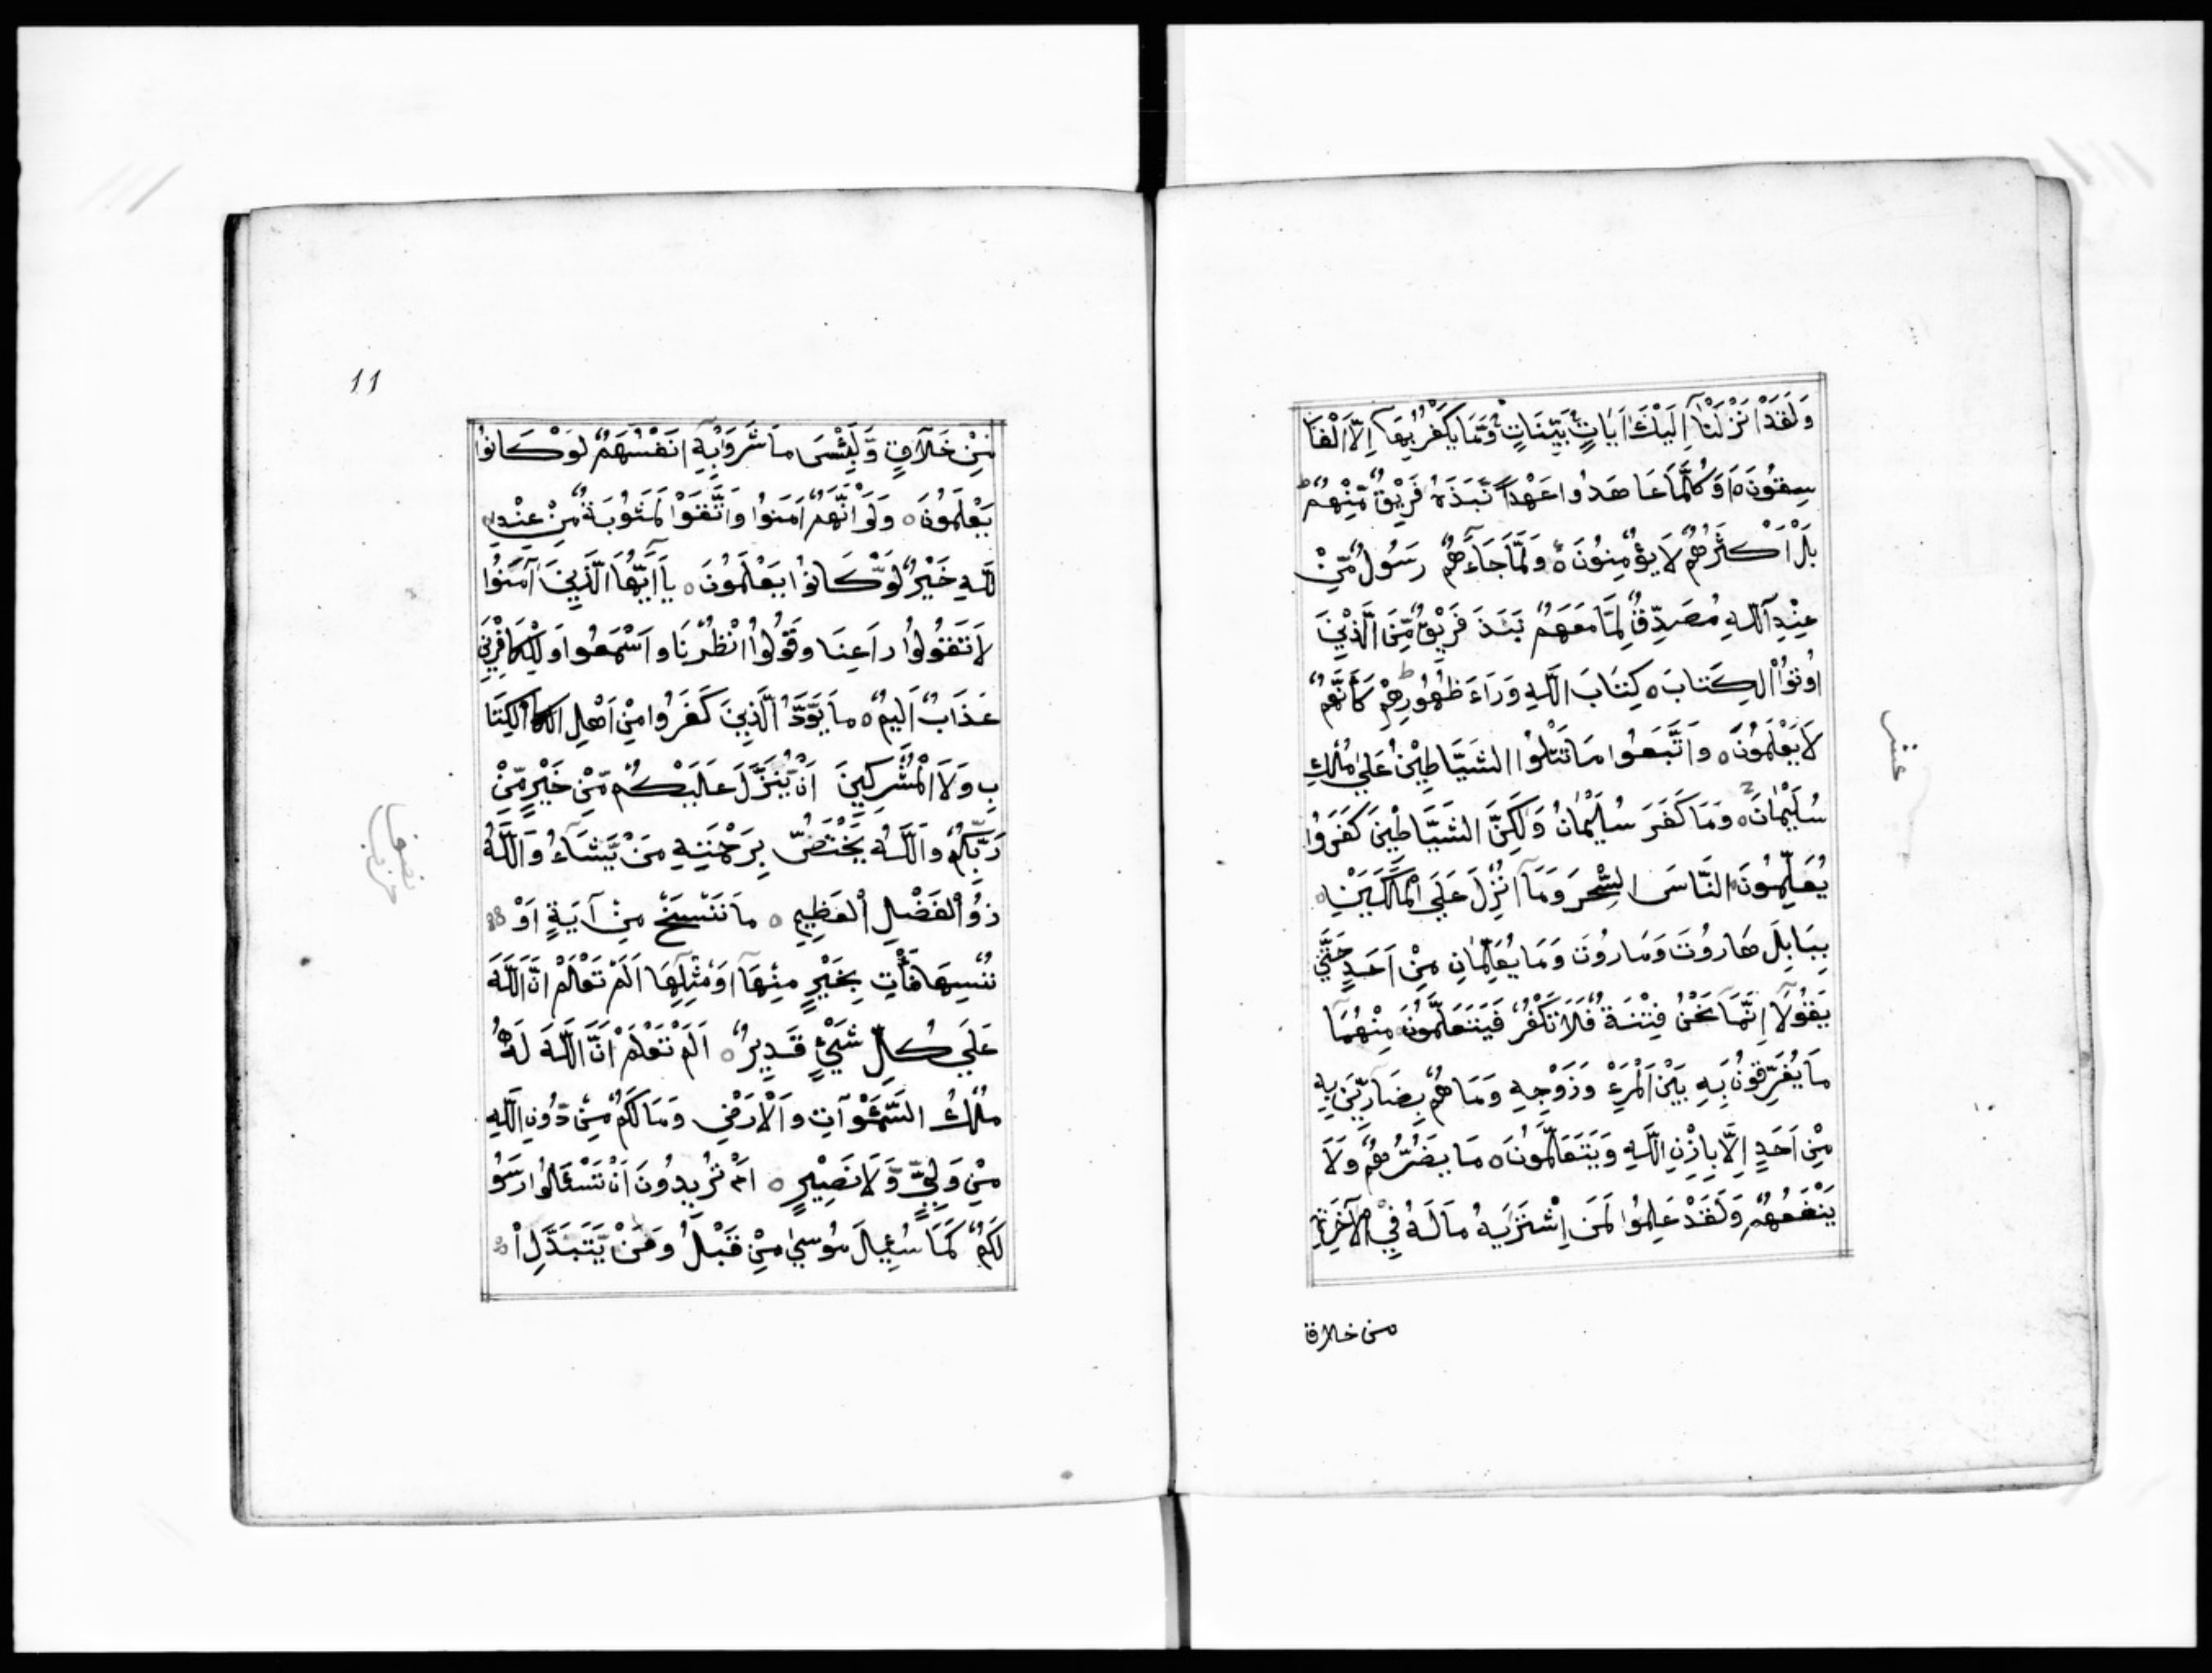 وَلَقَدْ اَنْزَلْنَآ اِلَيْكَ اٰيَاتٍ بَيِّنَاتٍ وَّمَا يَكْفُرُ بِهَآ اِلَّا الْفَا
سِقُونَ ه اَوَ كُلَّمَا عَاهَدُوا عَهْداً نَّبَذَهُ فَرِيْقٌ مِّنْهُمْ ط
بَلْ اَكْثَرُهُمْ لَا يُؤْمِنُونَ ه وَلَمَّا جَآءَهُمْ رَسُولٌ مِّنْ
عِنْدِ اللّهِ مُصَدِّقٌ لِمَا مَعَهُمْ نَبَذَ فَرِيْقٌ مِّنَ الَّذِيْنَ
اُوتُوْا الْكِتَابَ ه كِتَابَ اللّهِ وَرَاءَ ظُهُورِهِمْ كَأَنَّهُمْ
لَا يَعْلَمُونَ ه وَاتَّبَعُوا مَا تَتْلُوْا الشَّيَاطِيْنُ عَلَي مُلْكِ
سُلَيْمٰانَ ه وَمَا كَفَرَ سُلَيْمٰانُ وَلٰكِنَّ الشَّيَاطِيْنَ كَفَرُوا
يُعَلِّمُونَ النَّاسَ السِّحْرَ وَمَآ اُنْزِلَ عَلَي الْمَلَكَيْنِ ه
بِبَابِلَ هَارُوتَ وَمَارُوتَ وَمَا يُعَلِّمٰانِ مِنْ اَحَدٍ حَتّٰي
يَقُولَآ اِنَّمَا نَحْنُ فِتْنَةٌ فَلَا تَكْفُرْ فَيَتَعَلَّمُونَ مِنْهُمَا
مَا يُفَرِّقُونَ بِهِ بَيْنَ الْمَرْءِ وَزَوْجِهِ وَمَا هُمْ بِضَآرِّيْنَ بِهِ
مِنْ اَحَدٍ اِلَّا بِاِذْنِ اللّهِ وَيَتَعَلَّمُونَ ه مَا يَضُرُّهُمْ وَلَا
يَنْفَعُهُمْ وَلَقَدْ عَلِمُوا لَمَنِ اشْتَرٰيهُ مَا لَهُ فِيْ الْآخِرَةِ
من خلاق
عشر
11
مِنْ خَلَاقٍ وَّلَبِئْسَ مَا شَرَوْا بِهِ اَنْفُسَهُمْ لَوْ كَانُوْا
يَعْلَمُونَ ه وَلَوْ اَنَّهُمْ اٰمَنُوا وَاتَّقَوْا لَمَثُوبَةٌ مِّنْ عِنْدِ ا
للّهِ خَيْرٌ لَوْ كَانُوْا يَعْلَمُونَ ه يَآ اَيُّهَا الَّذِيْنَ اٰمَنُوْا
لَا تَقُولُوْا رَاعِنَا وَقُولُوا انْظُرْنَا وَاسْمَعُوا وَلِلْكَافِرِيْنَ
عَذَابٌ اَلِيْمٌ ه مَا يَوَدُّ الَّذِيْنَ كَفَرُوا مِنْ اَهْلِ الْكِتَا
بِ وَلَا الْمُشْرِكِيْنَ اَنْ يُّنَزَّلَ عَلَيْكُمْ مِّنْ خَيْرٍ مِّنْ
رَبِّكُمْ وَاللّهُ يَخْتَصُّ بِرَحْمَتِهِ مَنْ يَّشَآءُ وَاللّهُ
ذُوْ الْفَضْلِ الْعَظِيْمِ ه مَا نَنْسَخْ مِنْ آيَةٍ اَوْ
نُنْسِهَا نَأْتِ بِخَيْرٍ مِنْهَآ اَوْ مِثْلِهَا اَلَمْ تَعْلَمْ اَنَّ اللّهَ
عَلَي كُلِّ شَيْءٍ قَدِيْرٌ ه اَلَمْ تَعْلَمْ اَنَّ اللّهَ لَهُ
مُلْكُ السَّمٰوَاتِ وَالْاَرْضِ وَمَا لَكُمْ مِنْ دُونِ اللّهِ
مِنْ وَلِيٍّ وَّلَا نَصِيْرٍ ه اَمْ تُرِيْدُونَ اَنْ تَسْئَالُوْا رَسُو
لَكُمْ كَمَا سُئِلَ مُوْسٰي مِنْ قَبْلُ وَمَنْ يَّتَبَدَّلِ ا
نصف
حزب